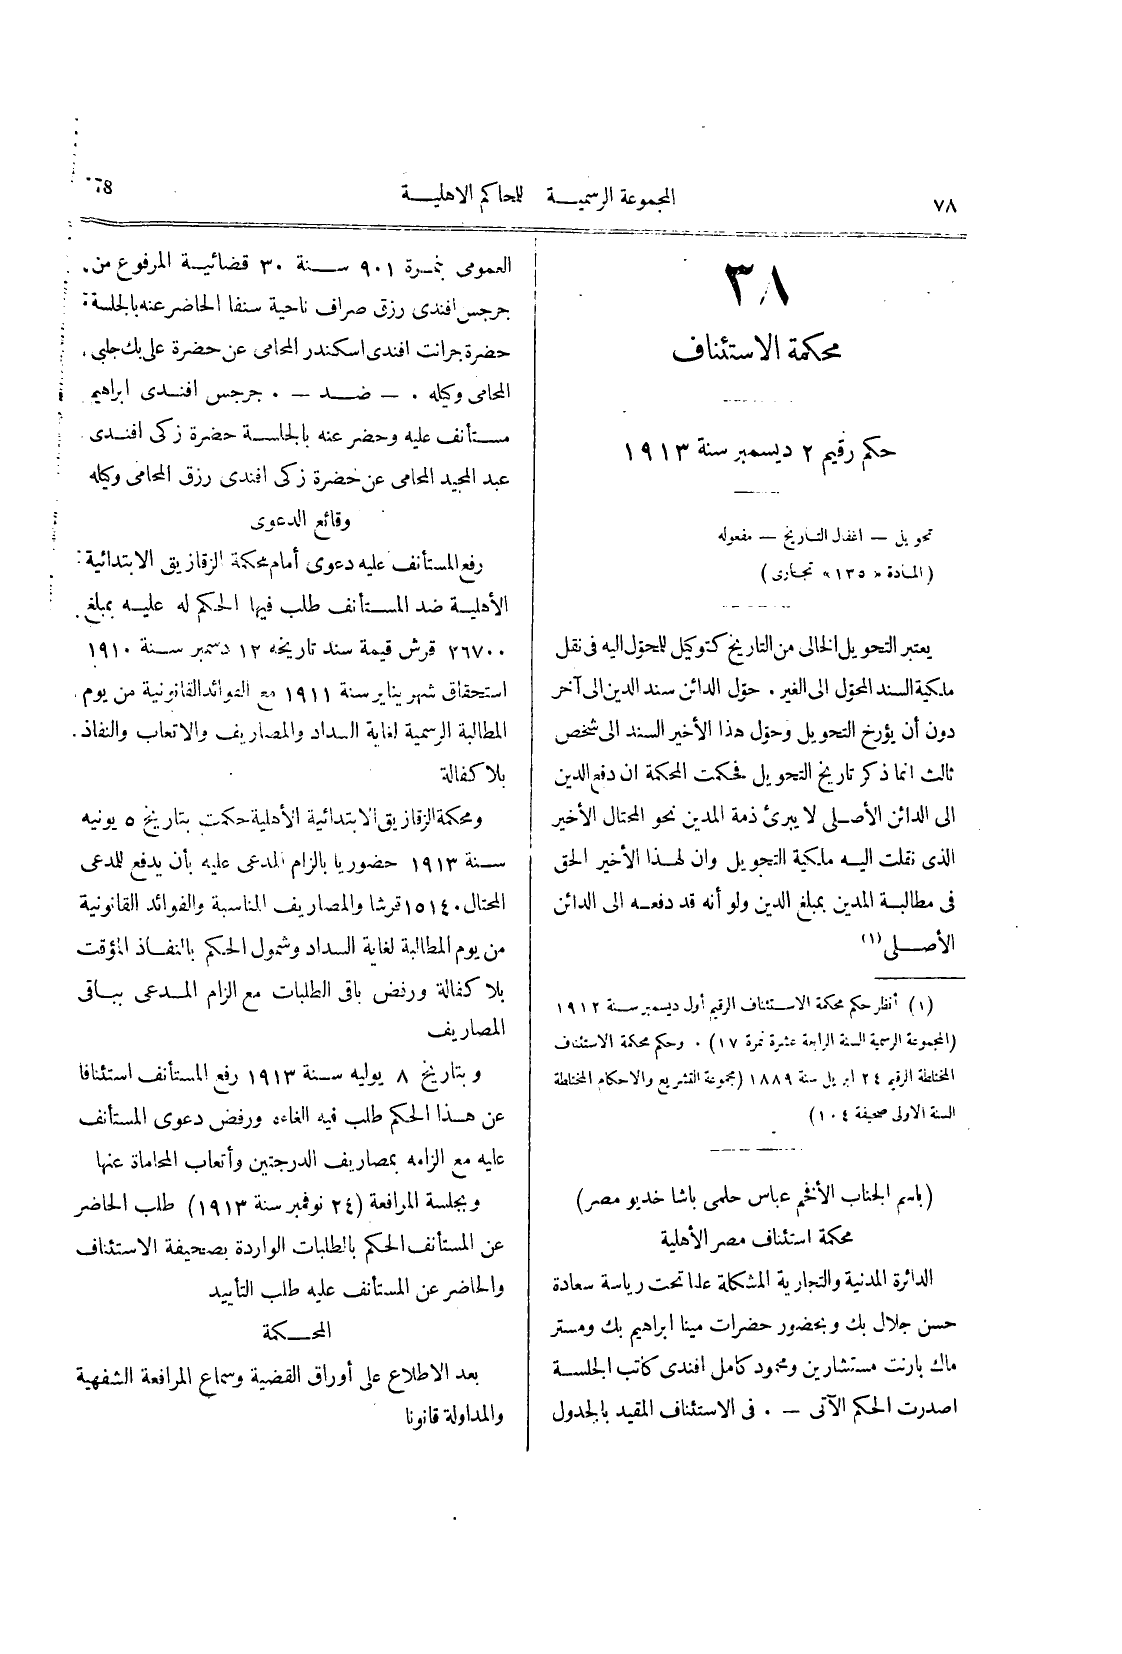 ٧٨
المجموعة الرسمية للحاكم الاهلية
78
٣٨
محكمة الاستئناف
حكم رقيم ٢ ديسمبر سنة ١٩١٣
تحويل — اغفال التاريخ — مفعوله
(المادة « ١٣٥ » تجارى)
يعتبر التحويل الخالى من التاريخ كتوكيل للحوّل اليه فى نقل
ملكية السند المحوّل الى الغير . حوّل الدائن سند الدين الى آخر
دون أن يؤرخ التحويل وحوّل هذا الأخير السند الى شخص
ثالث انما ذكر تاريخ التحويل فحكمت المحكمة ان دفع الدين
الى الدائن الأصلى لا يبرئ ذمة المدين نحو المحتال الأخير
الذى نقلت اليه ملكية التحويل وان لهذا الأخير الحق
فى مطالبة المدين بمبلغ الدين ولو أنه قد دفعه الى الدائن
الأصلى (١)
(١) أنظر حكم محكمة الاستئناف الرقيم أول ديسمبر سنة ١٩١٢
(المجموعة الرسمية السنة الرابعة عشرة نمرة ١٧) . وحكم محكمة الاستئناف
المختلطة الرقيم ٢٤ ابريل سنة ١٨٨٩ (مجموعة التشريع والاحكام المختلطة
السنة الاولى صحيفة ١٠٤)
(باسم الجناب الأفخم عباس حلمى باشا خديو مصر)
محكمة استئناف مصر الأهلية
الدائرة المدنية والتجارية المشكلة علنا تحت رياسة سعادة
حسن جلال بك وبحضور حضرات مينا ابراهيم بك ومستر
ماك بارنت مستشارين ومحمود كامل افندى كاتب الجلسة
اصدرت الحكم الآتى — . فى الاستئناف المقيد بالجدول
العمومى بنمرة ٩٠١ سنة ٣٠ قضائية المرفوع من
جرجس افندى رزق صراف ناحية سنفا الحاضر عنه بالجلسة
حضرة جرانت افندى اسكندر المحامى عن حضرة على بك جلبى
المحامى وكيله . — ضد — . جرجس افندى ابراهيم
مستأنف عليه وحضر عنه بالجلسة حضرة زكى افندى
عبد المجيد المحامى عن حضرة زكى افندى رزق المحامى وكيله
وقائع الدعوى
رفع المستأنف عليه دعوى أمام محكمة الزقازيق الابتدائية
الأهلية ضد المستأنف طلب فيها الحكم له عليه بمبلغ
٢٦٧٠٠ قرش قيمة سند تاريخه ١٢ دسمبر سنة ١٩١٠
استحقاق شهر يناير سنة ١٩١١ مع الفوائد القانونية من يوم
المطالبة الرسمية لغاية السداد والمصاريف والاتعاب والنفاذ
بلا كفالة
ومحكمة الزقازيق الابتدائية الأهلية حكمت بتاريخ ٥ يونيه
سنة ١٩١٣ حضوريا بالزام المدعى عليه بأن يدفع للدعى
المحتال ١٥١٤٠ قرشا والمصاريف المناسبة والفوائد القانونية
من يوم المطالبة لغاية السداد وشمول الحكم بالنفاذ المؤقت
بلا كفالة ورفض باقى الطلبات مع الزام المدعى بباقى
المصاريف
وبتاريخ ٨ يوليه سنة ١٩١٣ رفع المستأنف استئنافا
عن هذا الحكم طلب فيه الغاءه ورفض دعوى المستأنف
عليه مع الزامه بمصاريف الدرجتين وأتعاب المحاماة عنها
وبجلسة المرافعة (٢٤ نوفمبر سنة ١٩١٣) طلب الحاضر
عن المستأنف الحكم بالطلبات الواردة بصحيفة الاستئناف
والحاضر عن المستأنف عليه طلب التأييد
المحكمة
بعد الاطلاع على أوراق القضية وسماع المرافعة الشفهية
والمداولة قانونا